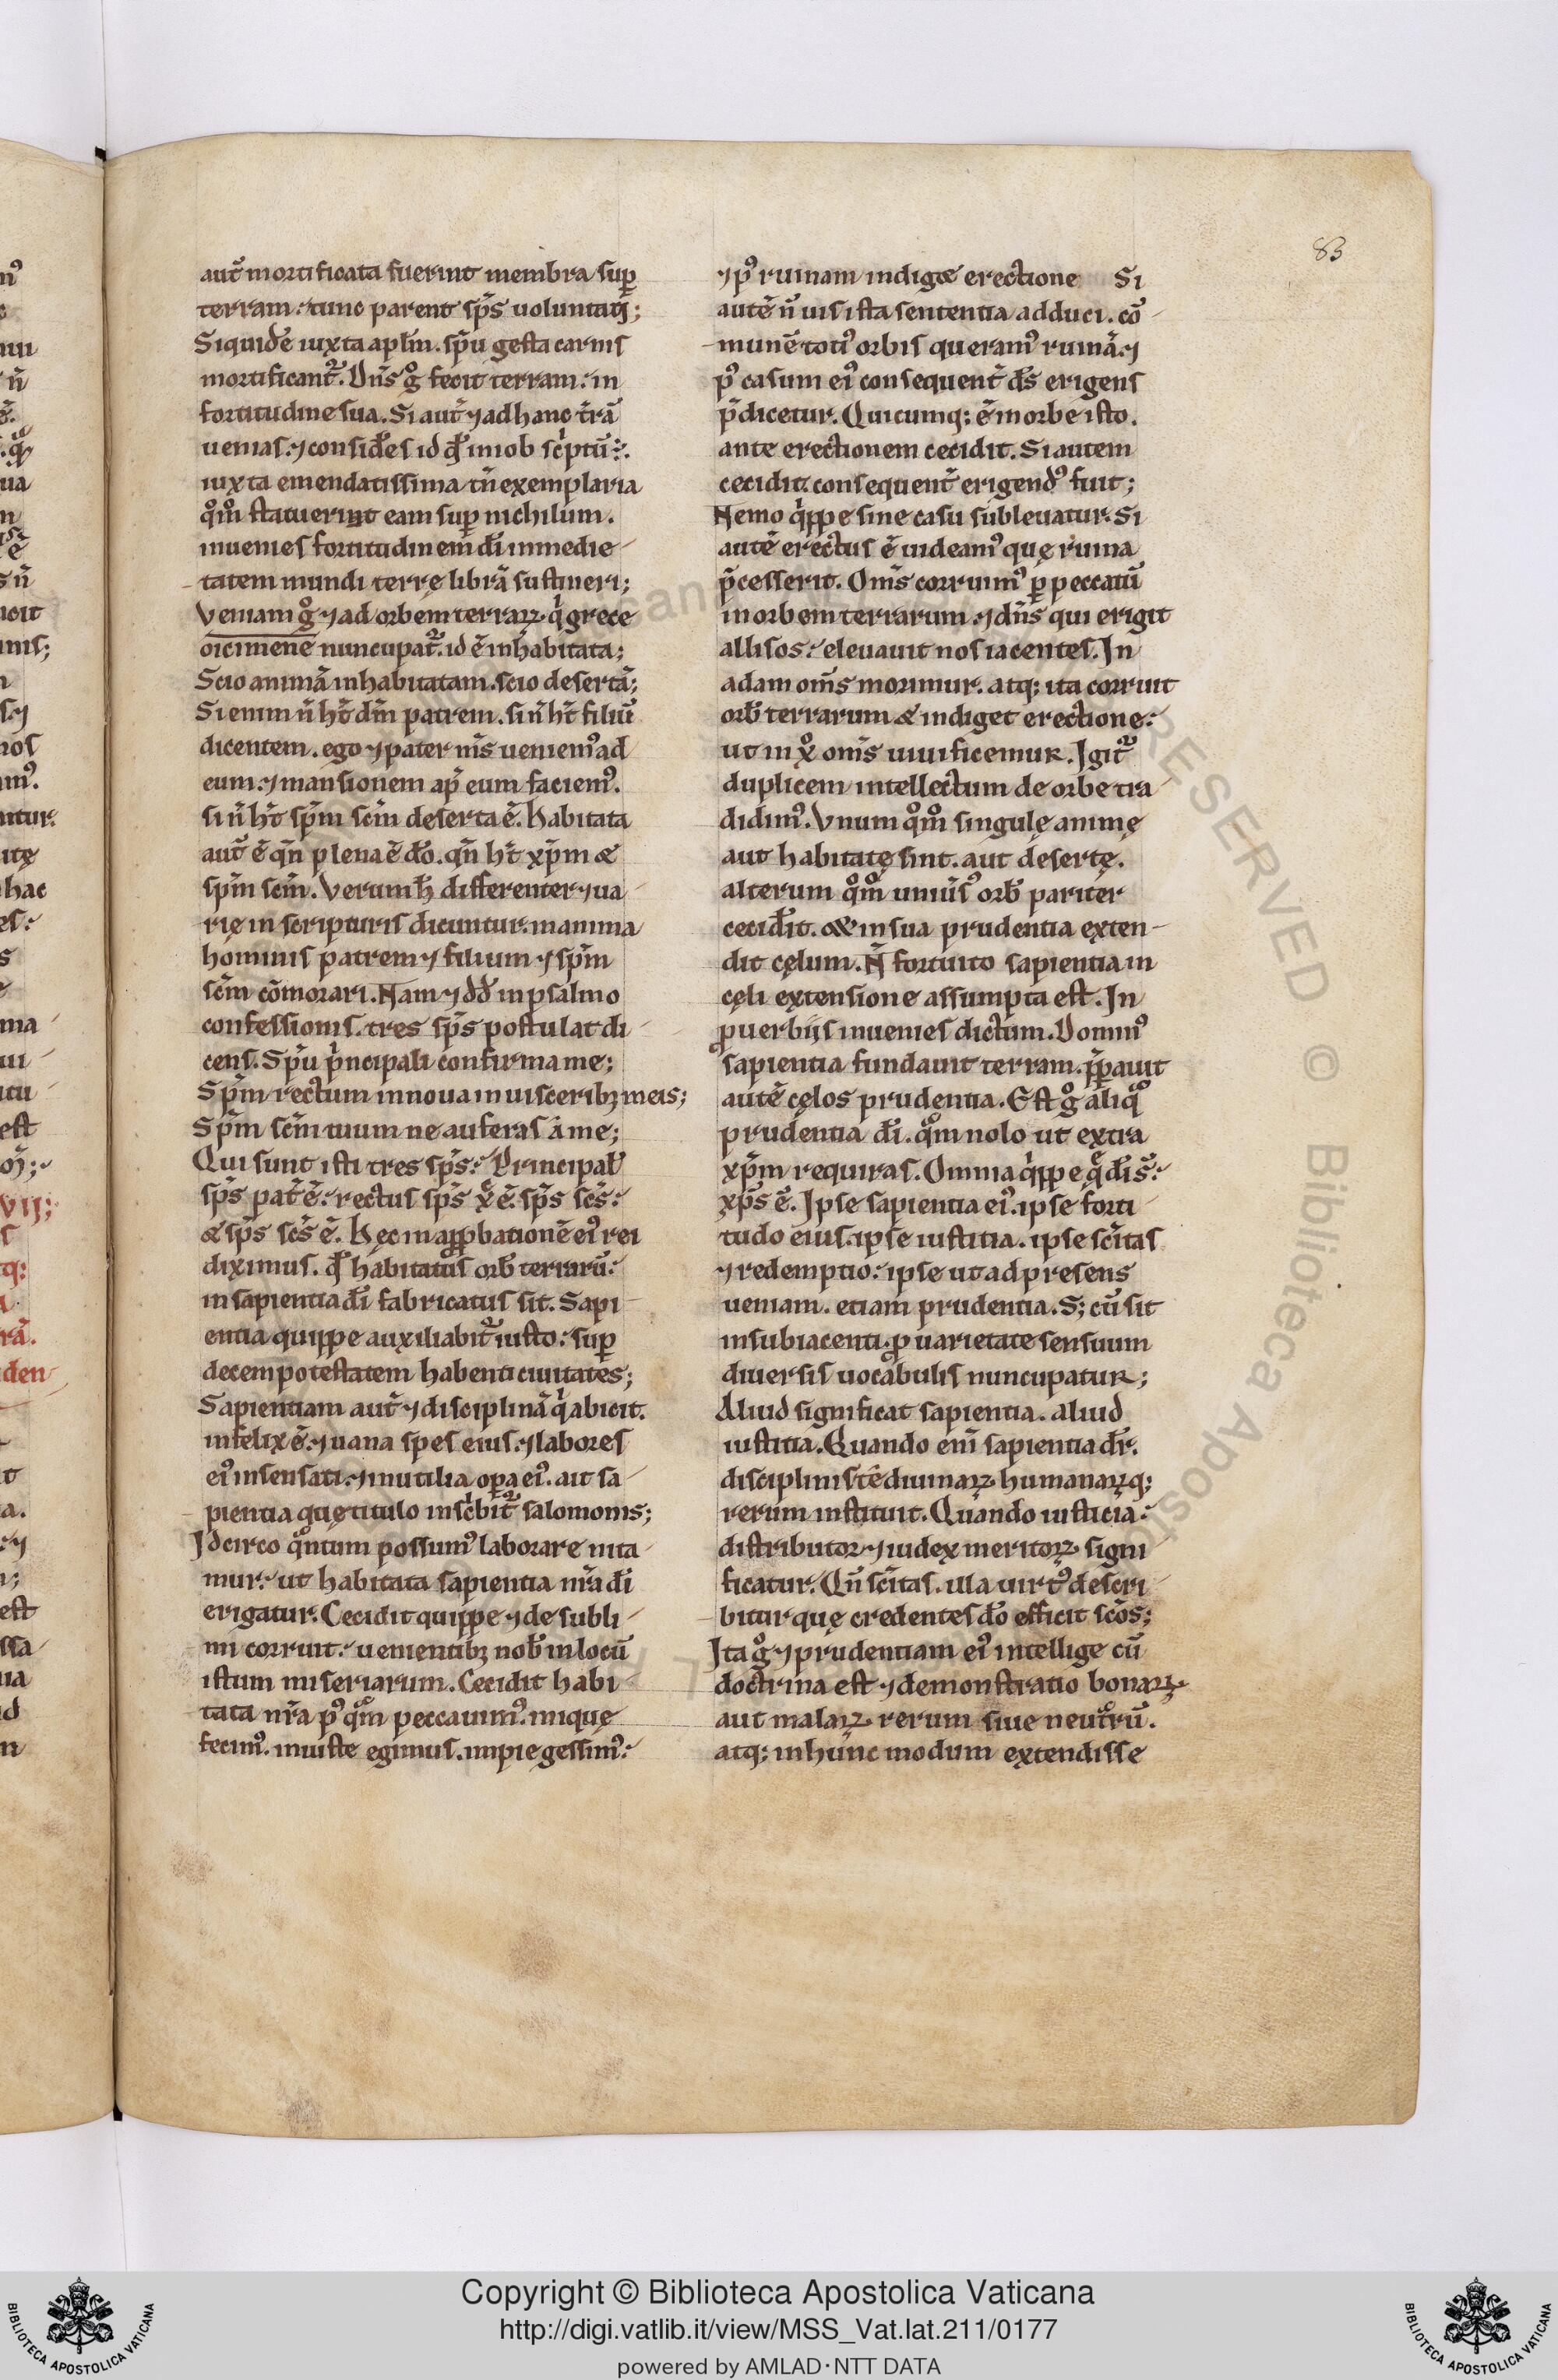 83
aut̄ mortificata fuerint membra suꝑ
terram. tunc parent sp̄s uoluntati;
Siquidē iuxta apl̄m. sp̄u gesta carnis
mortificant᷑. Dn̄s gͦ fecit terram. in
fortitudine sua. Si aut̄ ⁊ ad hanc t̄rā
uenias. ⁊ consid̄es id qd̄ in iob sc̄ptū.
iuxta emendatissima tn̄ exemplaria
qͦm̄ statuerint eam suꝑ nichilum.
inuenies fortitudinem dī in medie
tatem mundi terrę librā sustineri;
Veniam gͦ ⁊ ad orbem terraꝝ. qͥ grece
oicimene nuncupat᷑. id ē inhabitata;
Scio animā inhabitatam. scio desertā;
Si enim n̄ ht̄ dm̄ patrem. si n̄ ht̄ filiū
dicentem. ego ⁊ pater m̄s ueniemꝰ ad
eum. ⁊ mansionem ap̄ eum faciemꝰ.
si n̄ ht̄ sp̄m sc̄m deserta ē. habitata
aut̄ ē qn̄ plena ē dō. qn̄ ht̄ xp̄m &
sp̄m sc̄m. Verum h̄ differenter ⁊ ua
rię in scripturis dicuntur. in anima
hominis patrem ⁊ filium ⁊ sp̄m
sc̄m cōmorari. Nam ⁊ dd̄ in psalmo
confessionis. tres sp̄s postulat di
cens. Sp̄u pͥncipali confirma me;
Sp̄m rectum innoua in uisceribꝫ meis;
Sp̄m sc̄m tuum ne auferas a me;
Qui sunt isti tres sp̄s. Principal̄
sp̄s pat̄ ē. rectus sp̄s xͨ ē. sp̄s sc̄s.
& sp̄s sc̄s ē. Hęc in apꝓbationē eiꝰ rei
diximus. qd̄ habitatus orb̄ terrarū.
in sapientia dī fabricatus sit. Sapi
entia quippe auxiliabit᷑ iusto. suꝑ
decem potestatem habenti ciuitates;
Sapientiam aut̄ ⁊ disciplinā qͥ abicit.
infelix ē. ⁊ uana spes eius. ⁊ labores
eiꝰ insensati. ⁊ inutilia oꝑa eiꝰ. ait sa
pientia quę titulo insc̄bit᷑ salomonis;
Idcirco qͣntum possumꝰ laborare nita
mur. ut habitata sapientia nr̄a dī
erigatur. Cecidit quippe ⁊ de subli
mi corruit. uenientibꝫ nob̄ in locū
istum miseriarum. Cecidit habi
tata nr̄a pꝰ qͣm peccauimꝰ. inique
fecimꝰ. iniuste egimus. impie gessimꝰ.
⁊ pꝰ ruinam indiget erectione Si
autē n̄ uis ista sententia adduci. cō
munē totiꝰ orbis queramꝰ ruinā. ⁊
pꝰ casum eiꝰ consequent̄ ds̄ erigens
p̄dicetur. Quicumq; ē in orbe isto.
ante erectionem cecidit. Si autem
cecidit. consequent̄ erigendꝰ fuit;
Nemo qͥppe sine casu subleuatur. Si
autē erectus ē uideamꝰ quę ruina
p̄cesserit. Om̄s corruimꝰ ꝑ peccatū
in orbem terrarum. ⁊ dn̄s qui erigit
allisos. eleuauit nos iacentes. In
adam om̄s morimur. atq; ita corruit
orb̄ terrarum & indiget erectione.
ut in xͦ om̄s uiuificemur. Igit᷑
duplicem intellectum de orbe tra
didimꝰ. Vnum qͦm̄ singulę animę
aut habitatę sint. aut desertę.
alterum qͦm̄ uniūsꝰ orb̄ pariter
cecid̄it. & in sua prudentia exten
dit cęlum. N̄ fortuito sapientia in
cęli extensione assumpta est. In
ꝓuerbiis inuenies dictum. Dominꝰ
sapientia fundauit terram. p̄parauit
autē cęlos prudentia. Est gͦ aliqͣ
prudentia dī. qͣm nolo ut extra
xp̄m requiras. Omnia qͥppe q̄ dī sͭ.
xp̄s ē. Ipse sapientia eiꝰ. ipse forti
tudo eius. ipse iustitia. ipse sc̄itas
⁊ redemptio. ipse ut ad presens
ueniam. etiam prudentia. S; cū sit
in subiacenti. ꝓ uarietate sensuum
diuersis uocabulis nuncupatur;
Aliud significat sapientia. aliud
iustitia. Quando eni͂ sapientia dr̄.
disciplinis tē diuinaꝝ humanaꝝq;
rerum instituit. Quando iusticia.
distributor ⁊ iudex meritoꝝ signi
ficatur. Qn̄ sc̄itas. illa uirtꝰ descri
bitur quę credentes dō efficit scōs;
Ita gͦ ⁊ prudentiam eiꝰ intellige cū
doctrina est ⁊ demonstratio bonaꝝ
aut malaꝝ rerum siue neutrū.
atq; in hunc modum extendisse
Copyright © Biblioteca Apostolica Vaticana
http://digi.vatlib.it/view/MSS_Vat.lat.211/0177
powered by AMLAD·NTT DATA